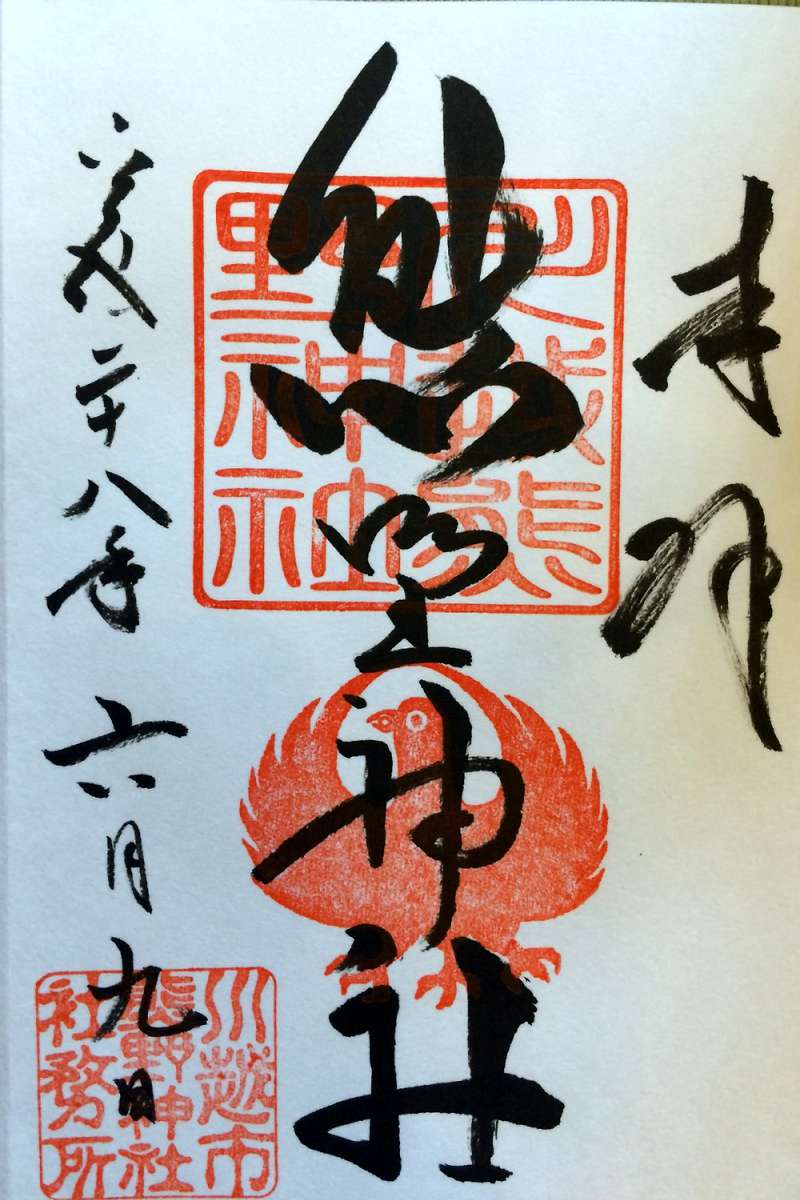 奉拝
川越熊
野神社
熊野神社
平成二十八年六月九日
川越市
熊野神社
社務所